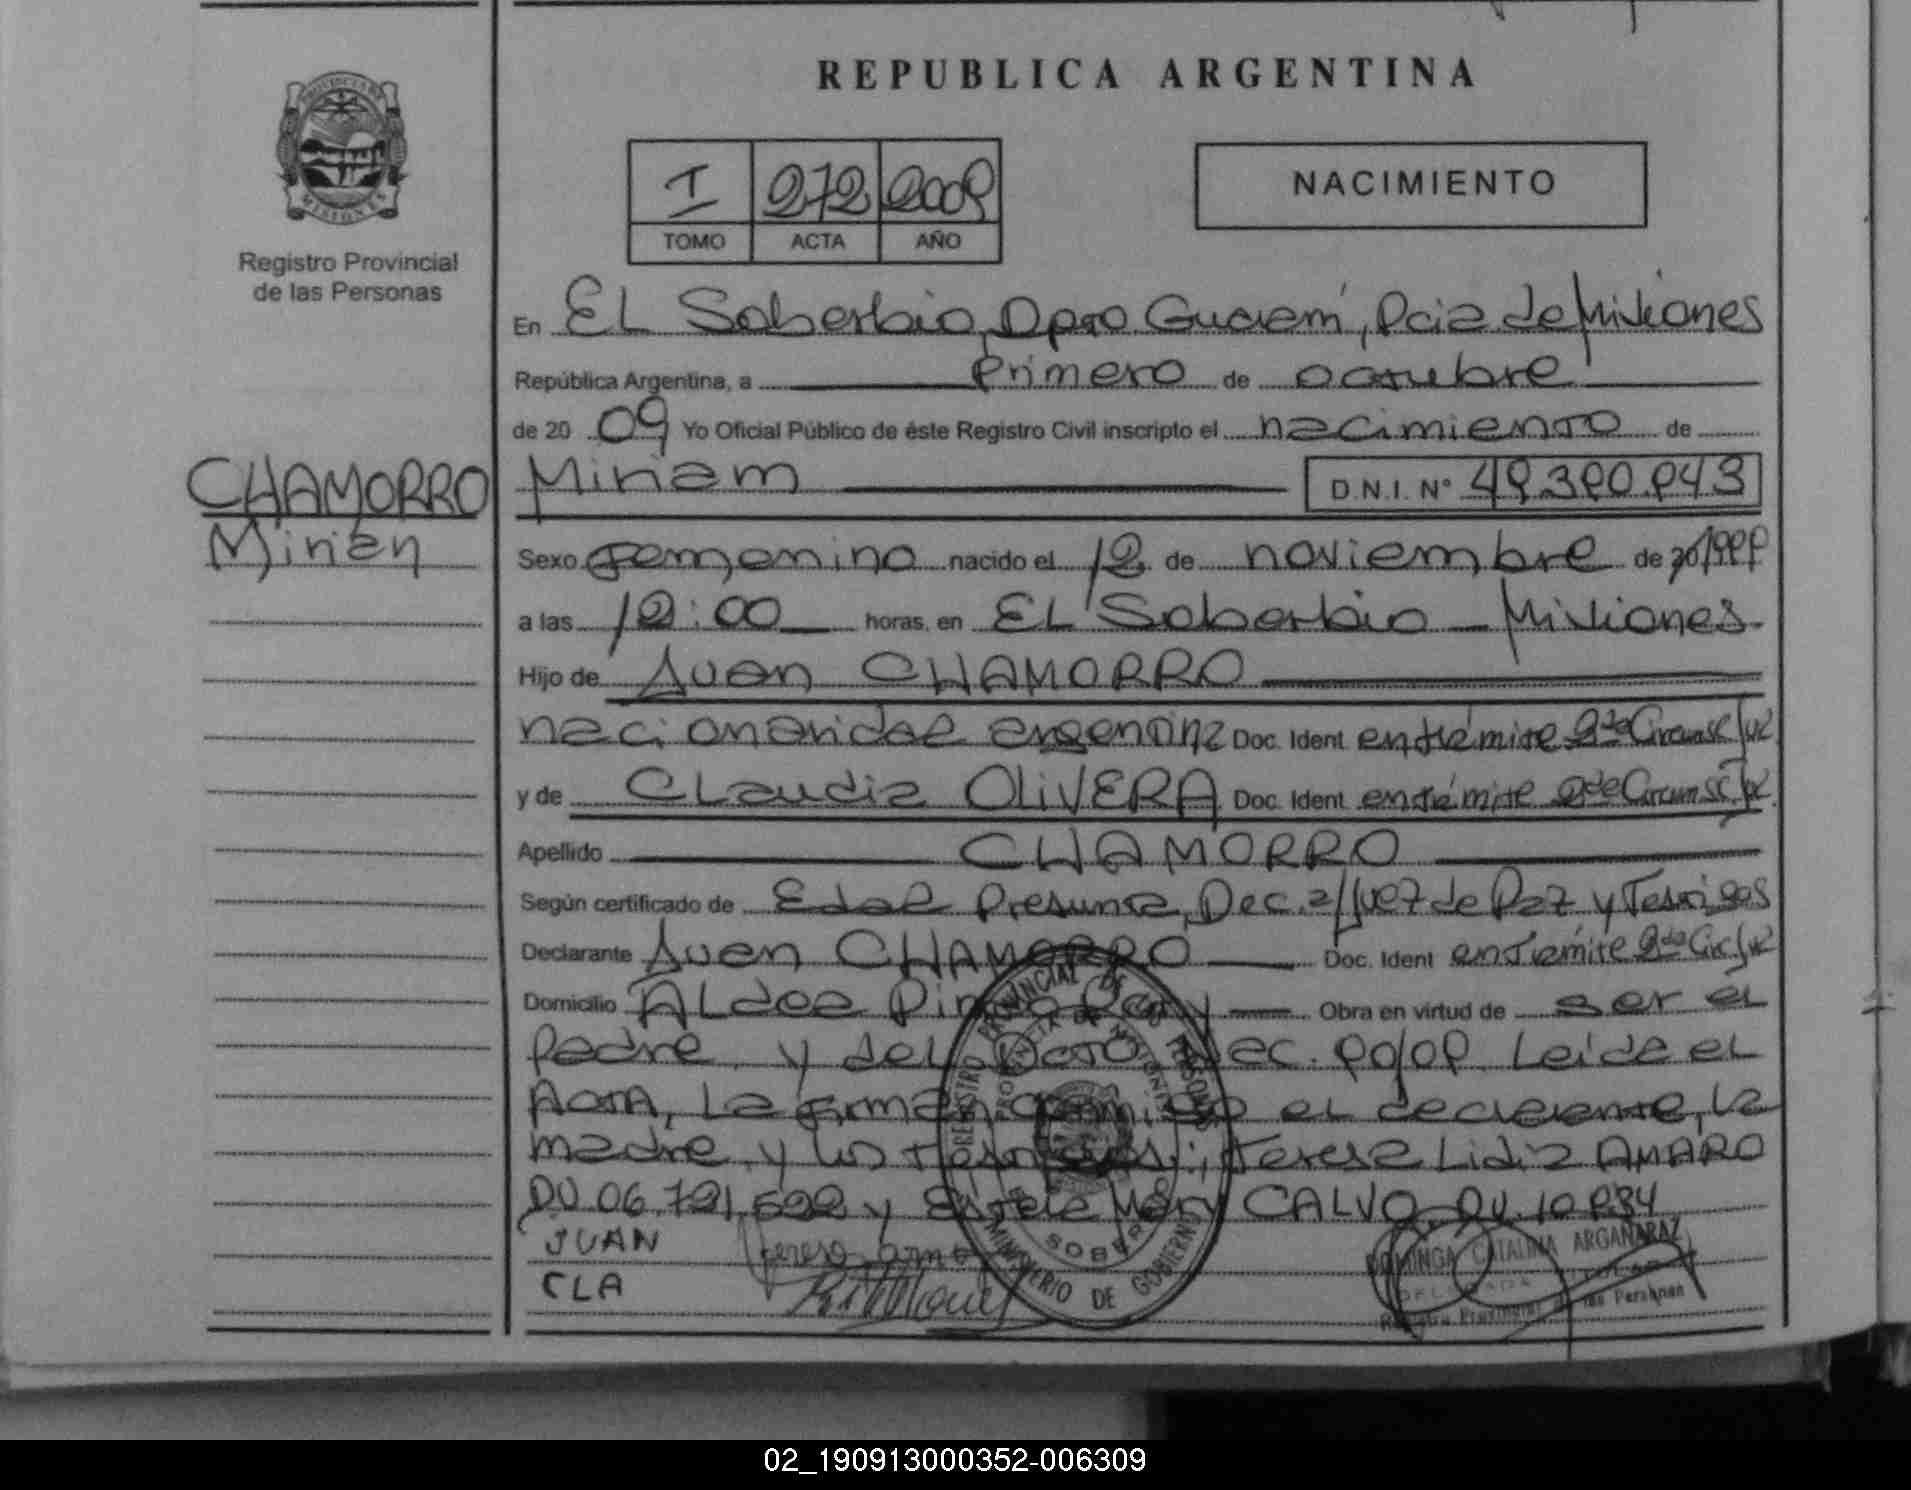 REPUBLICA ARGENTINA
PROVINCIA DE MISIONES
Registro Provincial
de las Personas
I 272 2009
TOMO ACTA AÑO
NACIMIENTO
En EL Soberbio, Dpto Guaraní, Pcia de Misiones
República Argentina, a Primero de octubre
de 20 09 Yo Oficial Público de éste Registro Civil inscripto el nacimiento de
CHAMORRO
Miriam
Miriam D.N.I. Nº
Sexo Femenino nacido el 12 de noviembre de
a las 12:00 horas, en EL Soberbio - Misiones
Hijo de Juan CHAMORRO
nacionalidad argentina Doc. Ident en trámite 2da Circunsc Jud
y de Claudia OLIVERA Doc. Ident en trámite 2da Circunsc Jud
Apellido CHAMORRO
Según certificado de Edad Presunta, Dec. a/Juez de Paz y Testigos
Declarante Juan CHAMORRO Doc. Ident en trámite 2da Circ Jud
Domicilio ALdea Obra en virtud de ser el
Padre y del Leida el
Acta, La firman el declarante, la
madre y los testigos: Teresa Lidia AMARO
DU 06.721.522 y CALVO DU. 10
JUAN
CLA
REGISTRO PROVINCIAL DE LAS PERSONAS
PROVINCIA DE MISIONES
SOBERBIO
MINISTERIO DE GOBIERNO
DOMINGA CATALINA ARGAÑARAZ
DELEGADA TITULAR
Registro Provincial de las Personas
02_190913000352-006309